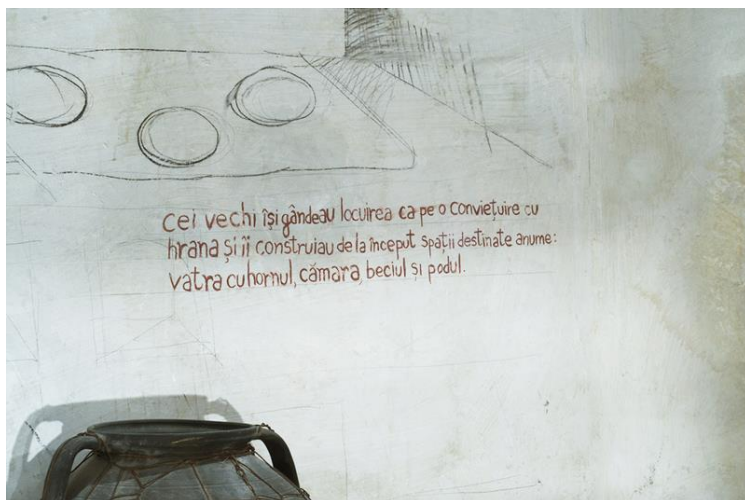 cei vechi își gândeau locuirea ca pe o conviețuire cu
hrana și îi construiau de la început spații destinate anume:
vatra cu hornul, cămara, beciul și podul.